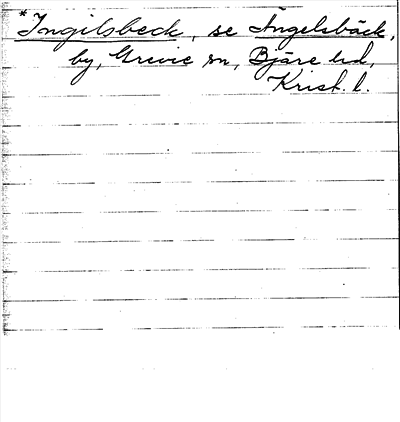 *Ingilsbeck, se Ängelsbäck,
by, Grevie sn, Bjäre hd,
Krist. l.